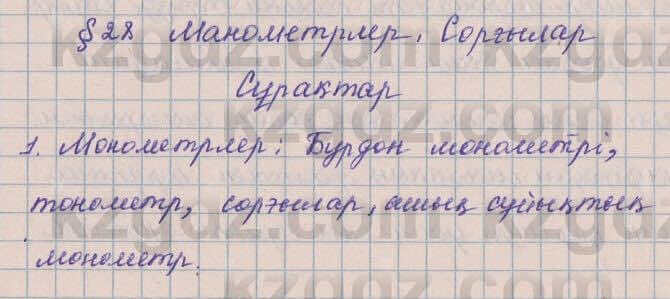 § 28 Манометрлер. Сорғылар
Сұрақтар
1. Монометрлер: Бурдон монометрі,
тонометр, сорғылар, ашық сұйықтық
монометр.